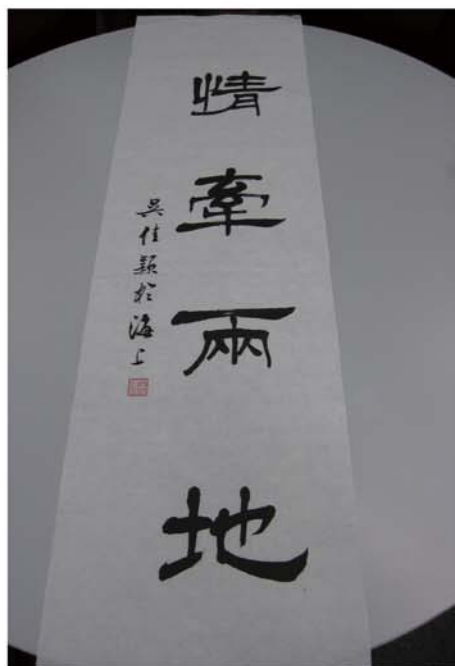 情牽兩地
吳佳穎於海上